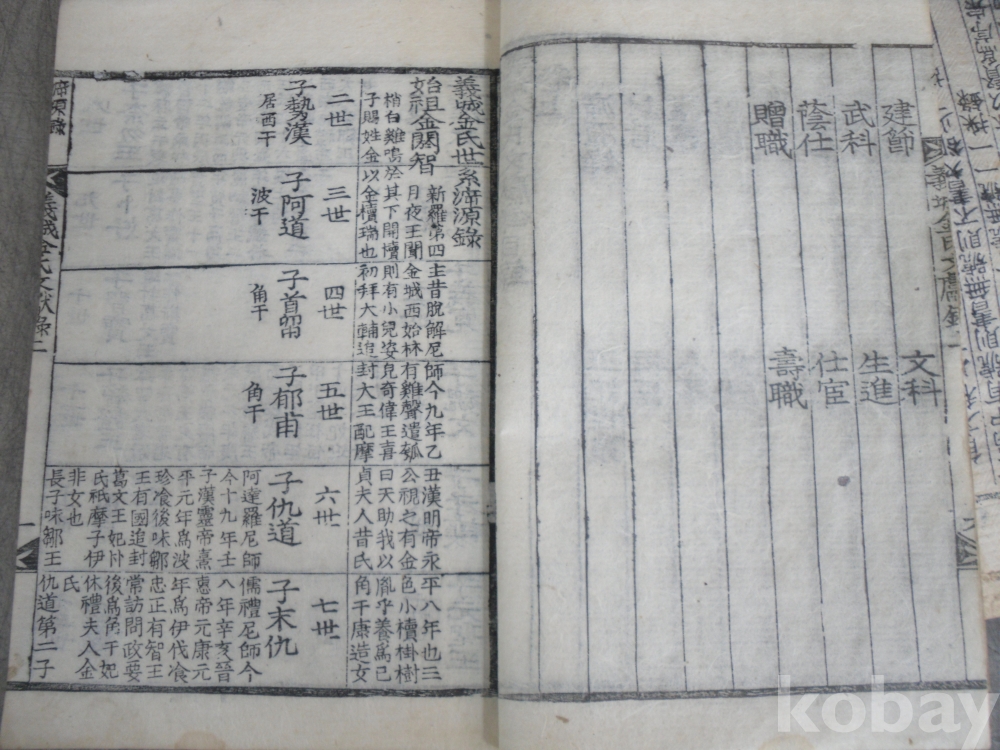 建節 文科
武科 生進
蔭仕 仕宦
贈職 壽職
義城金氏世系㴑源錄
始祖金閼智
新羅第四主昔脫解尼師今九年乙丑漢明帝永平八年也三
月夜王聞金城西始林有雞聲遣瓠公視之有金色小櫝掛樹
梢白雞鳴於其下開櫝則有小兒姿皃奇偉王喜曰天助我以胤乎養爲己
子賜姓金以金櫝瑞也初拜大輔追封大王配摩貞夫人昔氏角干康造女
二世
子勢漢
居西干
三世
子阿道
波干
四世
子首留
角干
五世
子郁甫
角干
六世
子仇道
阿達羅尼師
今十九年壬
子漢靈帝熹
平元年爲波
珍飡後味鄒
王有國追封
葛文王妃朴
氏祇摩子伊
非女也
長子味鄒王
七世
子末仇
儒禮尼師今
八年辛亥晉
惠帝元康元
年爲伊伐飡
忠正有智王
常訪問政要
後爲角干妃
休禮夫人金
氏
仇道第二子
義城金氏文獻錄二
一
kobay